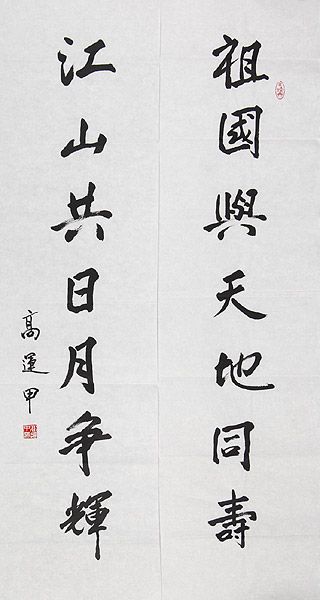 祖國與天地同壽
江山共日月争輝
高運甲